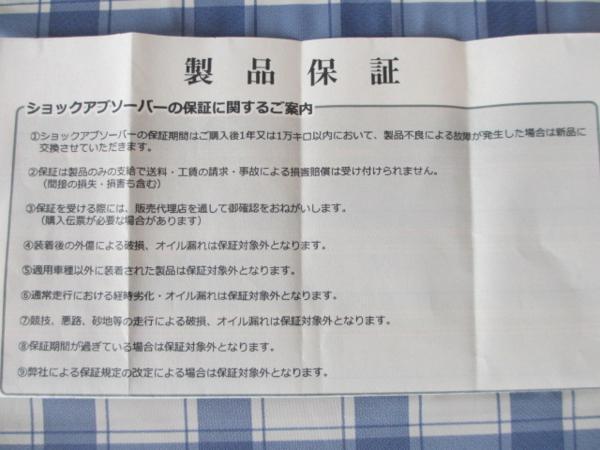 製品保証
ショックアブソーバーの保証に関するご案内
①ショックアブソーバーの保証期間はご購入後1年又は1万キロ以内において、製品不良による故障が発生した場合は新品に
交換させていただきます。
②保証は製品のみの支給で送料・工賃の請求・事故による損害賠償は受け付けられません。
（間接の損失・損害も含む）
③保証を受ける際には、販売代理店を通して御確認をおねがいします。
（購入伝票が必要な場合があります）
④装着後の外傷による破損、オイル漏れは保証対象外となります。
⑤適用車種以外に装着された製品は保証対象外となります。
⑥通常走行における経時劣化・オイル漏れは保証対象外となります。
⑦競技、悪路、砂地等の走行による破損、オイル漏れは保証対象外となります。
⑧保証期間が過ぎている場合は保証対象外となります。
⑨弊社による保証規定の改定による場合は保証対象外となります。